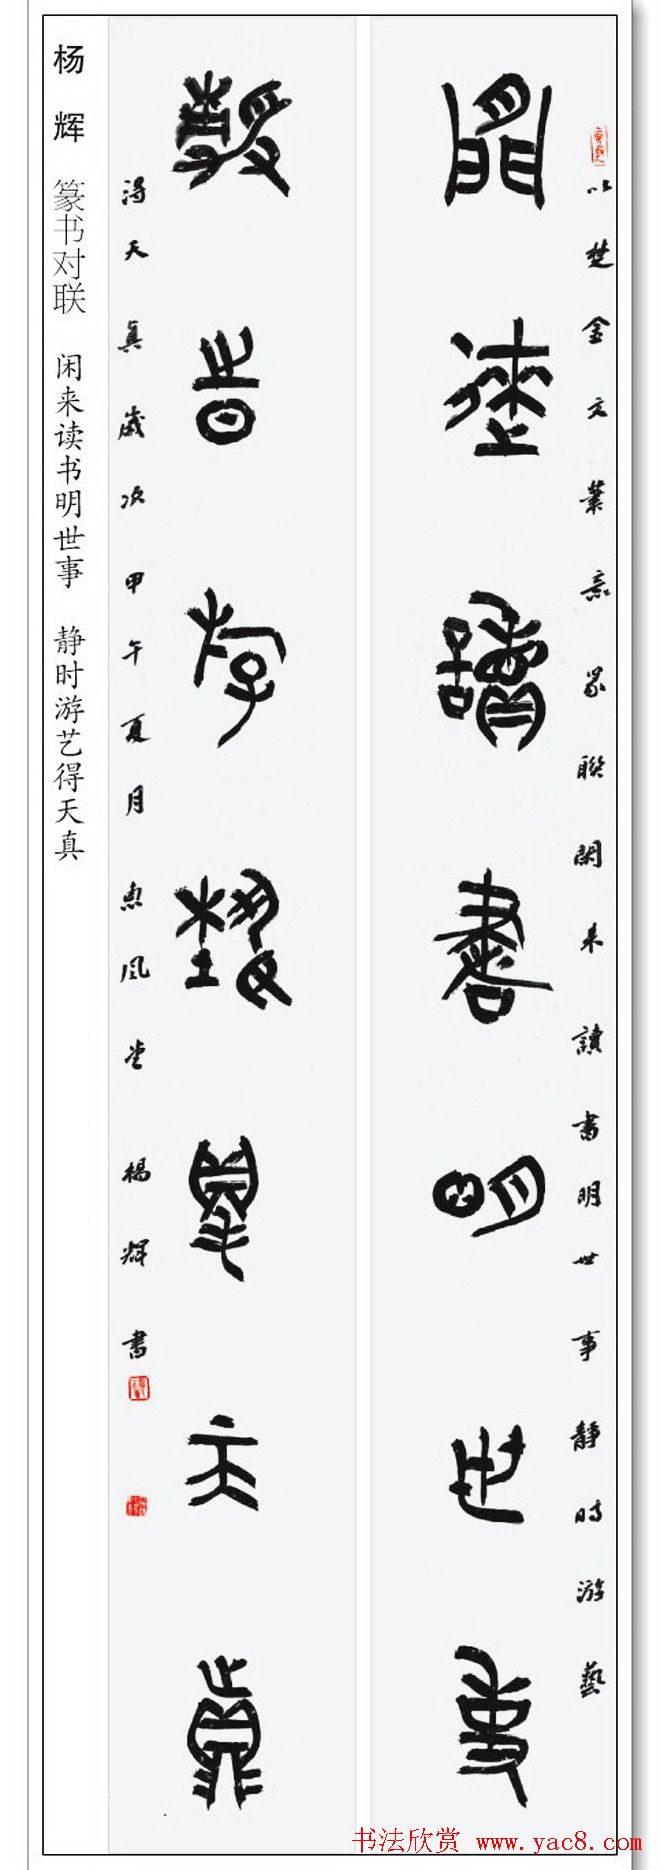 以楚金文筆意篆聯閑来讀書明世事靜時游藝
閒來讀書明世事
靜時游藝得天真
得天真歲次甲午夏月惠風堂楊輝書
杨辉 篆书对联 闲来读书明世事 静时游艺得天真
书法欣赏 www.yac8.com